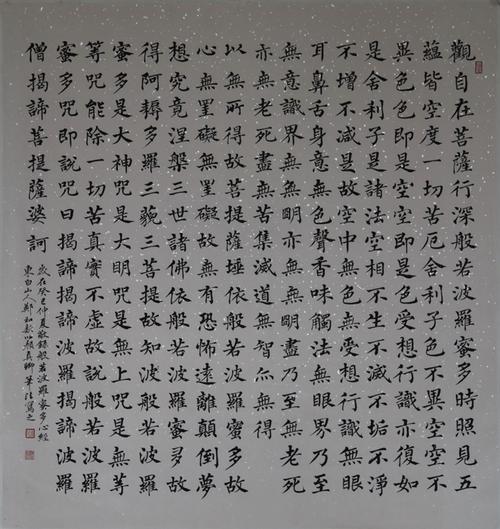 觀自在菩薩行深般若波羅蜜多時照見五
蘊皆空度一切苦厄舍利子色不異空空不
異色色即是空空即是色受想行識亦復如
是舍利子是諸法空相不生不滅不垢不淨
不增不減是故空中無色無受想行識無眼
耳鼻舌身意無色聲香味觸法無眼界乃至
無意識界無無明亦無無明盡乃至無老死
亦無老死盡無苦集滅道無智亦無得
以無所得故菩提薩埵依般若波羅蜜多故
心無罣礙無罣礙故無有恐怖遠離顛倒夢
想究竟涅槃三世諸佛依般若波羅蜜多故
得阿耨多羅三藐三菩提故知般若波羅
蜜多是大神咒是大明咒是無上咒是無等
等咒能除一切苦真實不虛故說般若波羅
蜜多咒即說咒曰揭諦揭諦波羅揭諦波羅
僧揭諦菩提薩婆訶
歲在癸巳仲夏敬錄般若波羅蜜多心經
東白山人鄭和顏真卿筆法寫之